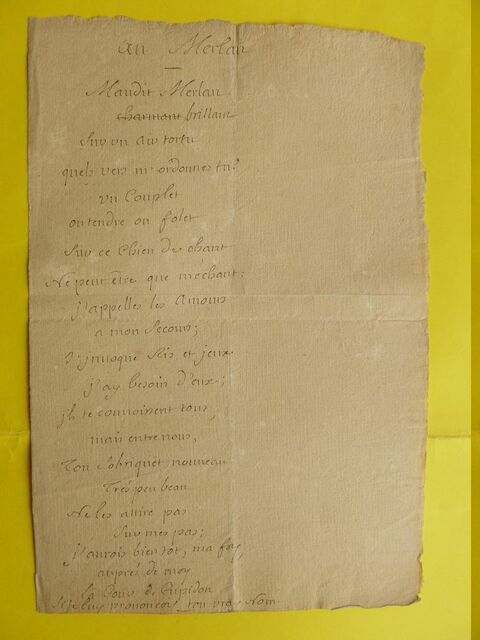 au Merlan
Maudit Merlan
charmant brillant
Sur un air tortu
quels vers m'ordonnes tu?
un Couplet
ou tendre ou folet
Sur ce Chien de chant
Ne peut être que mechant:
j'appelles les Amours
a mon Secours;
j'invoque Ris et jeux
j'ay besoin d'eux;
ils te connoissent tous,
mais entre nous,
Ton Sobriquet nouveau
Très peu beau
Ne les attire pas
Sur mes pas;
j'aurois bientôt, ma foy,
auprés de moy
la Cour de Cupidon
Si je luy prononçois ton vray Nom.